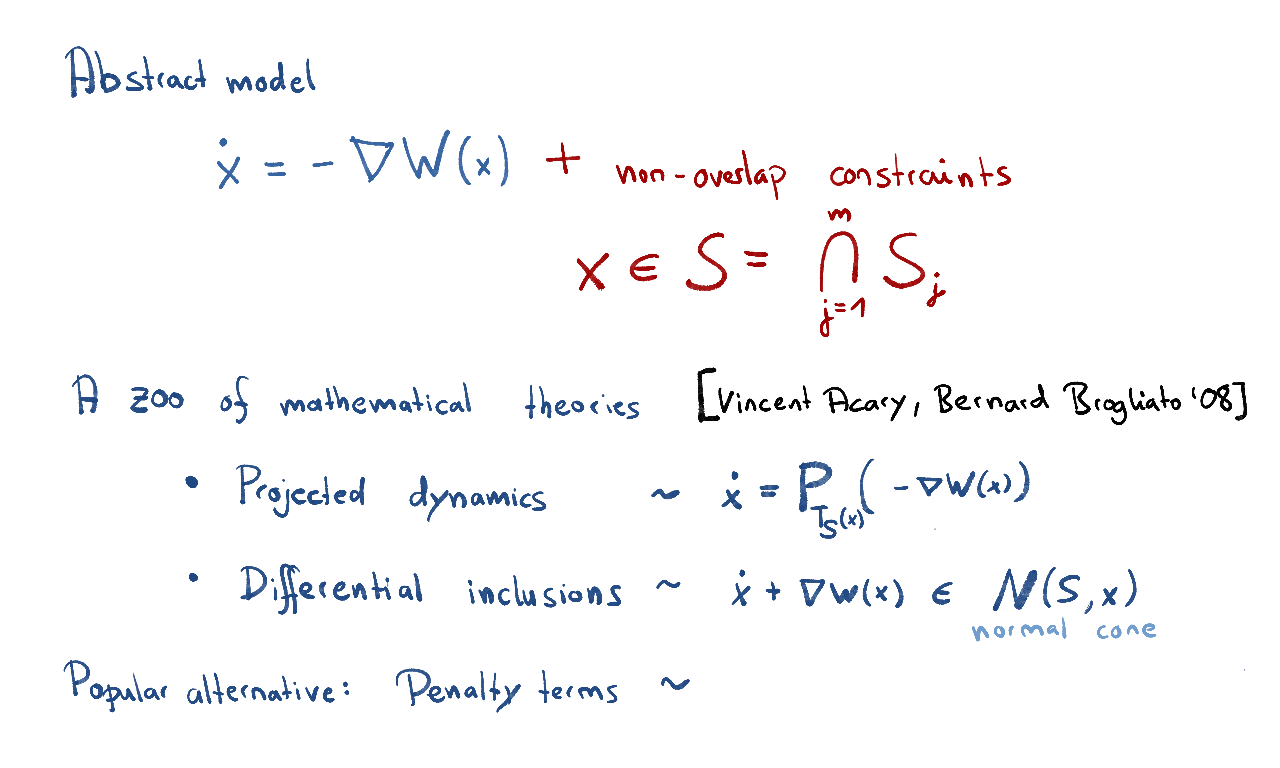 Abstract model
ẋ = - ∇W(x) + non-overlap constraints
x ∈ S = ⋂_{j=1}^{m} S_j
A zoo of mathematical theories [Vincent Acary, Bernard Brogliato '08]
• Projected dynamics ~ ẋ = P_{T_S(x)}(-∇W(x))
• Differential inclusions ~ ẋ + ∇W(x) ∈ N(S,x)
normal cone
Popular alternative: Penalty terms ~